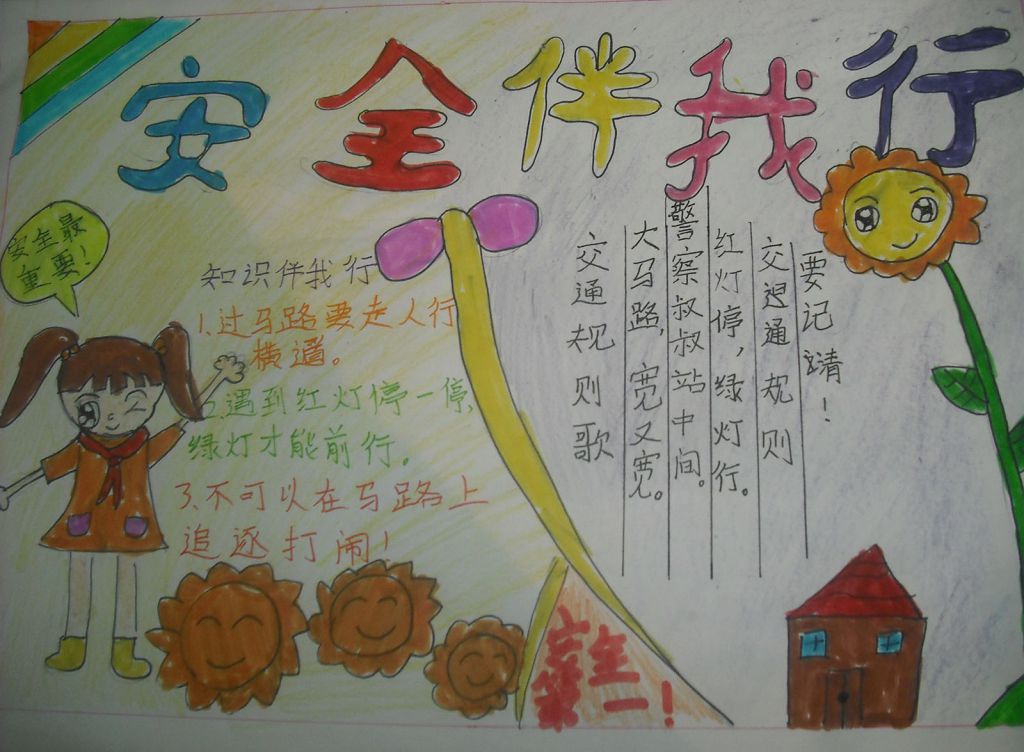 安全伴我行
安全最
重要!
知识伴我行
1.过马路要走人行
横道。
2.遇到红灯停一停,
绿灯才能前行。
3.不可以在马路上
追逐打闹!
交通规则歌
大马路,宽又宽。
警察叔叔站中间。
红灯停,绿灯行。
交迟通规则
要记请!
安全
第一!